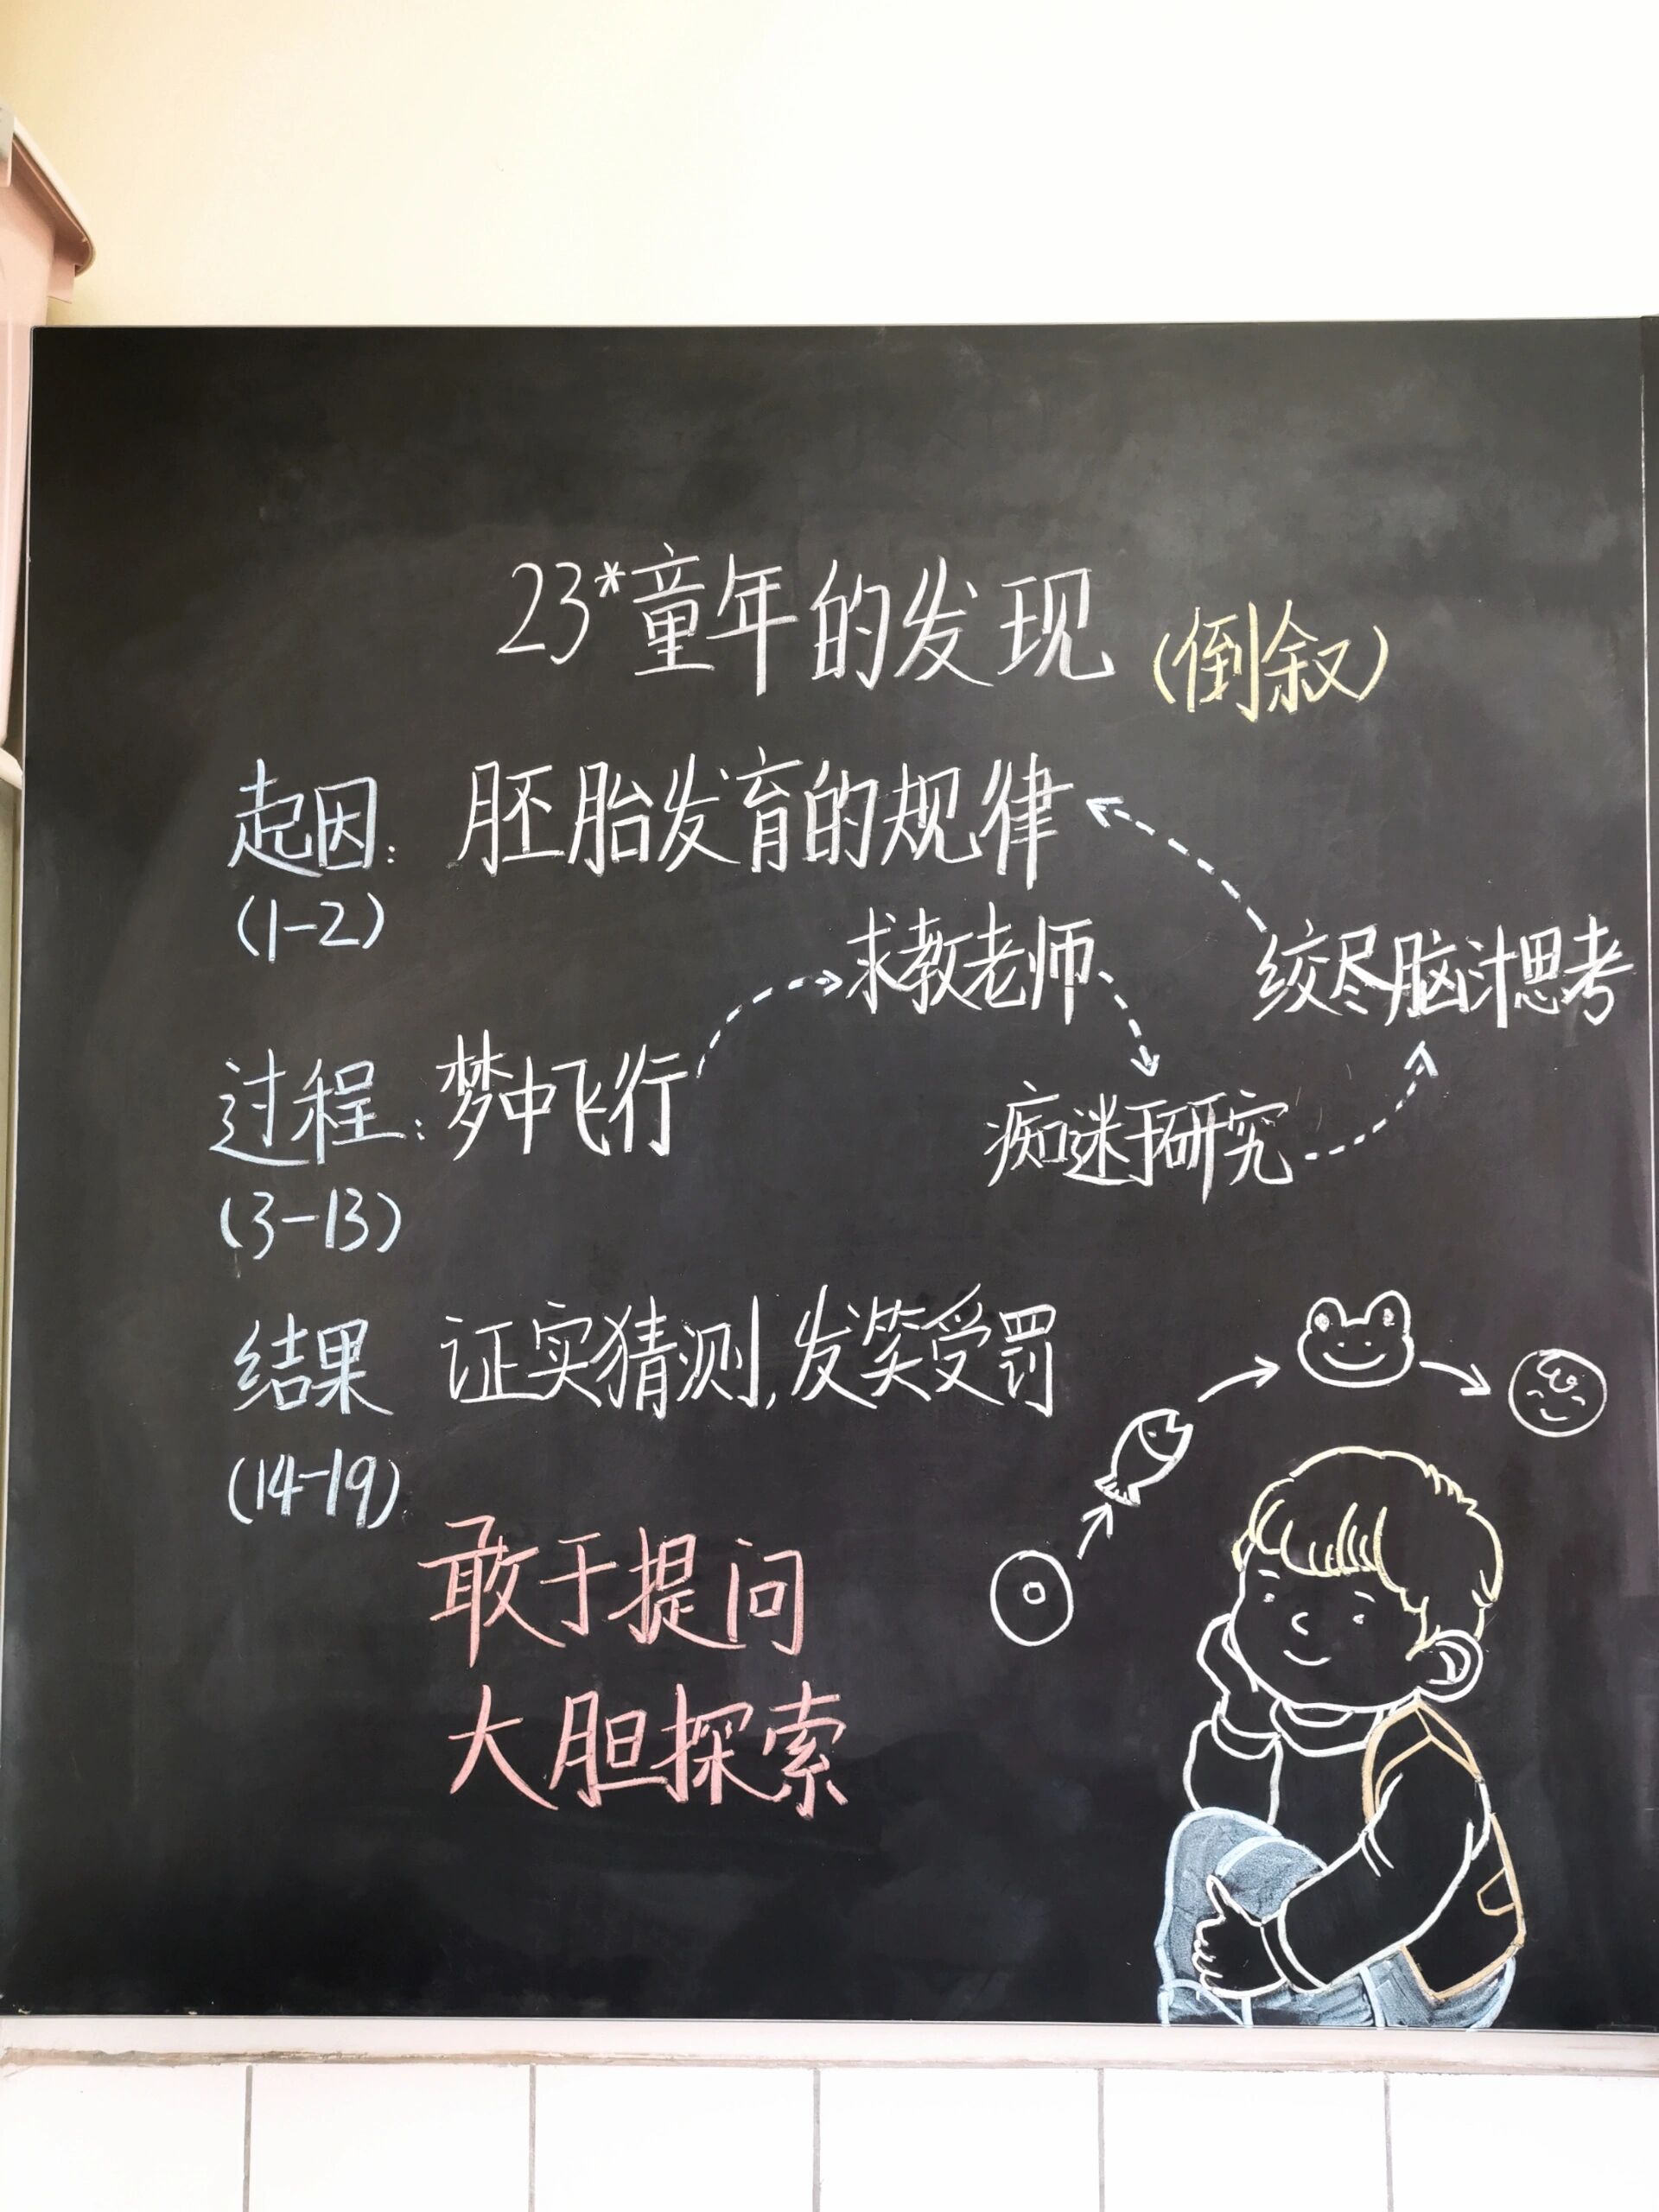 23*童年的发现 (倒叙)
起因: 胚胎发育的规律
(1-2)
求教老师、
绞尽脑汁思考
过程: 梦中飞行
痴迷于研究
(3-13)
结果 证实猜测,发笑受罚
(14-19)
敢于提问
大胆探索